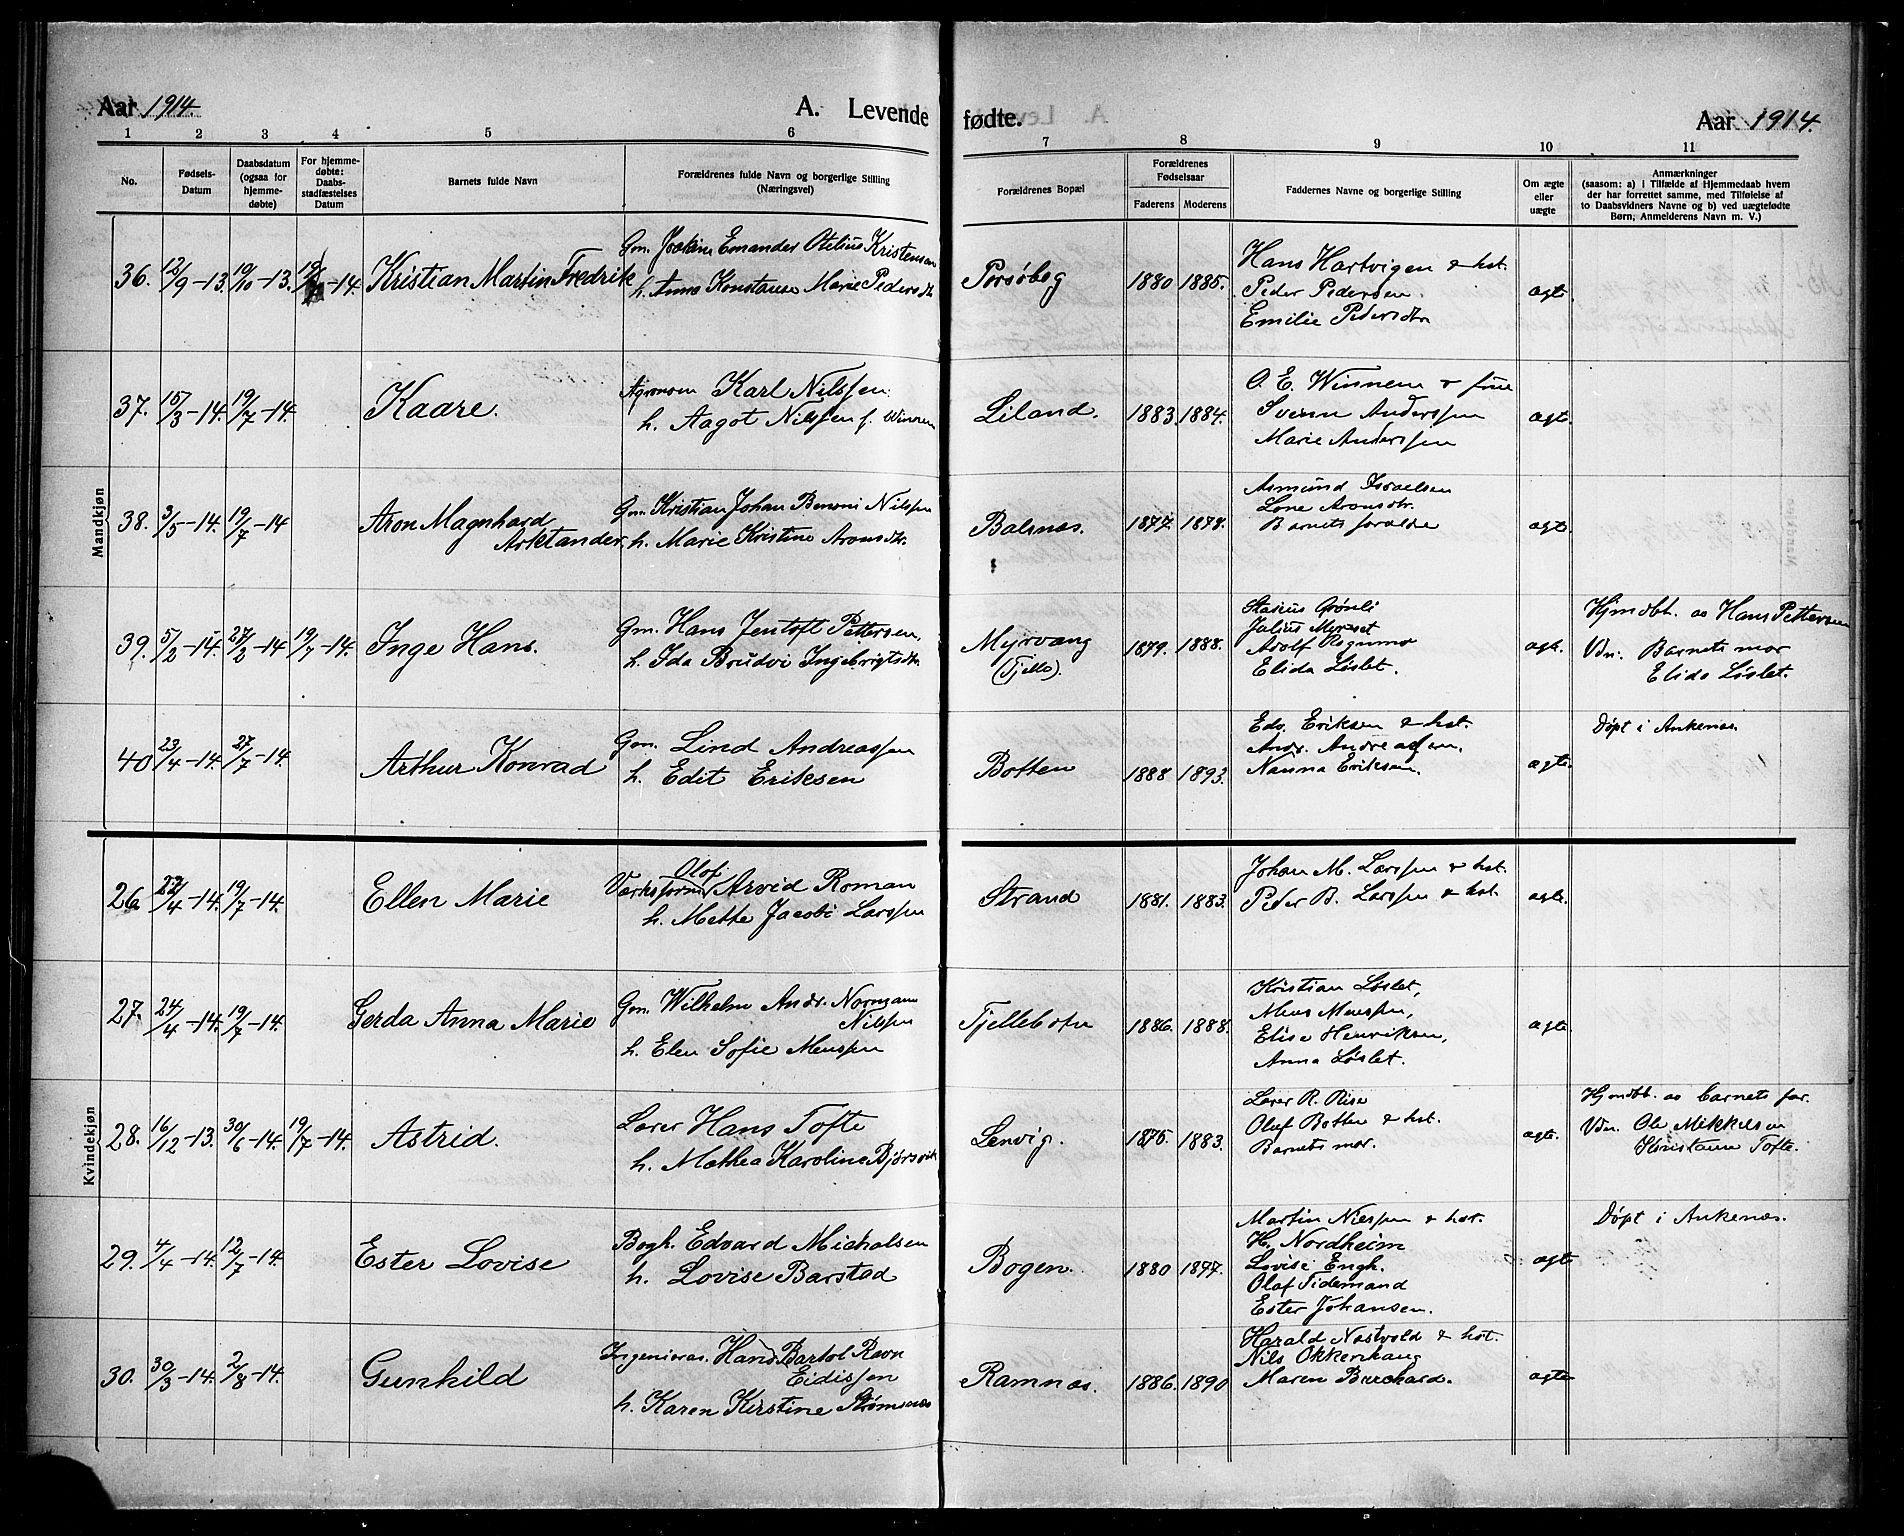 Aar 1914. A. Levende fødte. Aar 1914.
1 2 3 4 5 6 7 8 9 10 11
No.
Fødsels-
Datum
Daabsdatum
(ogsaa for
hjemme-
døbte)
For hjemme-
døbte:
Daabs-
stadfæstelses
Datum
Barnets fulde Navn
Forældrenes fulde Navn og borgerlige Stilling
(Næringsvei)
Forældrenes Bopæl
Forældrenes
Fødselsaar
Faderens Moderens
Faddernes Navne og borgerlige Stilling
Om ægte
eller
uægte
Anmærkninger
(saasom: a) i Tilfælde af Hjemmedaab hvem
der har forrettet samme, med Tilføielse af
to Daabsvidners Navne og b) ved uægtefødte
Børn, Anmelderens Navn m. V.)
Mandkjøn
36. 12/9-13. 19/10-13. -14. Kristian Martin Fredrik
Gm. Emander Otelius Kristensen
h. Anna Konstanse Marie Pedersdtr
1880 1885.
Hans Hartvigen & hst.
Peder Pedersen.
Emilie Pedersdtr
ægte
37. 15/3-14. 19/7-14. Kaare.
Karl Nilssen.
h. Aagot Nilssen f. Winnem
Liland. 1883. 1884.
O. E. Winnem & frue
Svenn Anderssen
Marie Anderssen
ægte.
38. 3/5-14. 19/7-14 Aron Magnhard
Arktander.
Gm. Kristian Johan Benoni Nilssen
h. Marie Kristine Aronsdtr.
Balsnæs. 1877. 1878.
Asmund Israelsen
Lone Aronsdtr.
Barnets forældre
ægte.
39. 5/2-14. 27/2-14 19/7-14. Inge Hans.
Gm. Hans Jentoft Pettersen,
h. Ida Brudvi Ingebrigtsdtr
Myrvang
(Tjelle).
1879. 1888.
Grønli
Julius Myrset
Adolf
Elida Løslet.
ægte.
Hjmdbt. av Hans Pettersen
Vdn: Barnets mor
Elida Løslet.
40 23/4-14. 27/7-14. Arthur Konrad
Gm. Lind Andreassen
h. Edit Eriksen
Botten 1888 1893.
Edv. Eriksen & hst.
Andr. Andreassen.
Nanna Eriksen.
ægte.
Døpt i Ankenæs.
Kvindekjøn
26. 22/4-14. 19/7-14. Ellen Marie
Olof
Værksform. Arvid Roman
h. Mette Jacobi Larssen
Strand 1881. 1883.
Johan M. Larssen & hst.
Peder B. Larssen & hst.
ægte.
27. 24/4-14. 19/7-14. Gerda Anna Marie
Gm. Wilhelm Andr. Normann
Nilssen
h. Elen Sofie Menssen
Tjellebotn 1886. 1888.
Kristian Løslet,
Mens Menssen,
Elise Henriksen,
Anna Løslet.
ægte
28. 16/12-13. 30/6-14. 19/7-14. Astrid.
Lærer Hans Tofte
h. Mathea Karoline Bjørsvik
Lenvig. 1875. 1883.
Lærer R. Rise
Oluf Botten & hst.
Barnets mor.
ægte.
Hjmdbt. av barnets far.
Vdn. Ole Mikkelsen
Kristanne Tofte.
29. 4/4-14. 12/7-14. Ester Lovise
Bogh. Edvard Micholsen
h. Lovise Barstad
Bogen. 1880 1877.
Martin Nilssen & hst.
H. Nordheim
Lovise Engh.
Olaf Tidemand
Ester Johansen.
ægte
Døpt i Ankenæs.
30. 30/3-14. 2/8-14. Gunhild
Hans Bartol Ravn
Eidissen
h. Karen Kirstine Strømsnæs
Ramnæs. 1886. 1890
Harald Nostvold & hst.
Nils Okkenhaug
Maren Burchard.
ægte